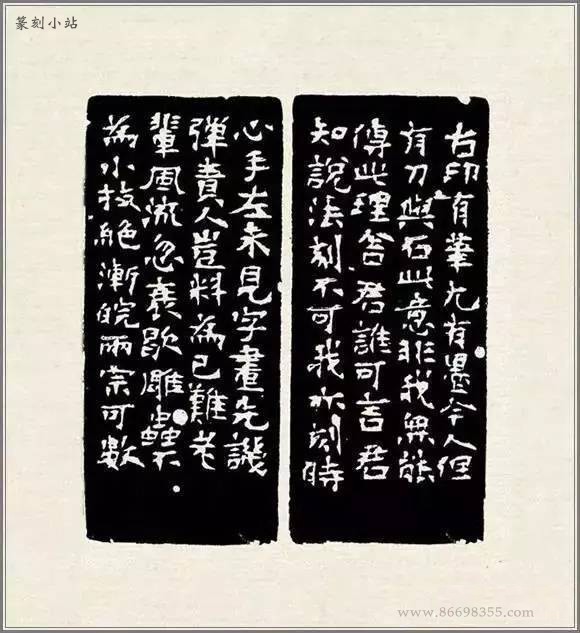 篆刻小站
古印有筆尤有墨今人但
有刀與石此意非我無能
傳此理答君誰可言君
知說法刻不可我亦刻時
心手左未見字畫先譏
彈責人豈料為己難老
輩風流忽衰歇雕蟲不
為小技絕浙皖兩宗可數
www.86698355.com